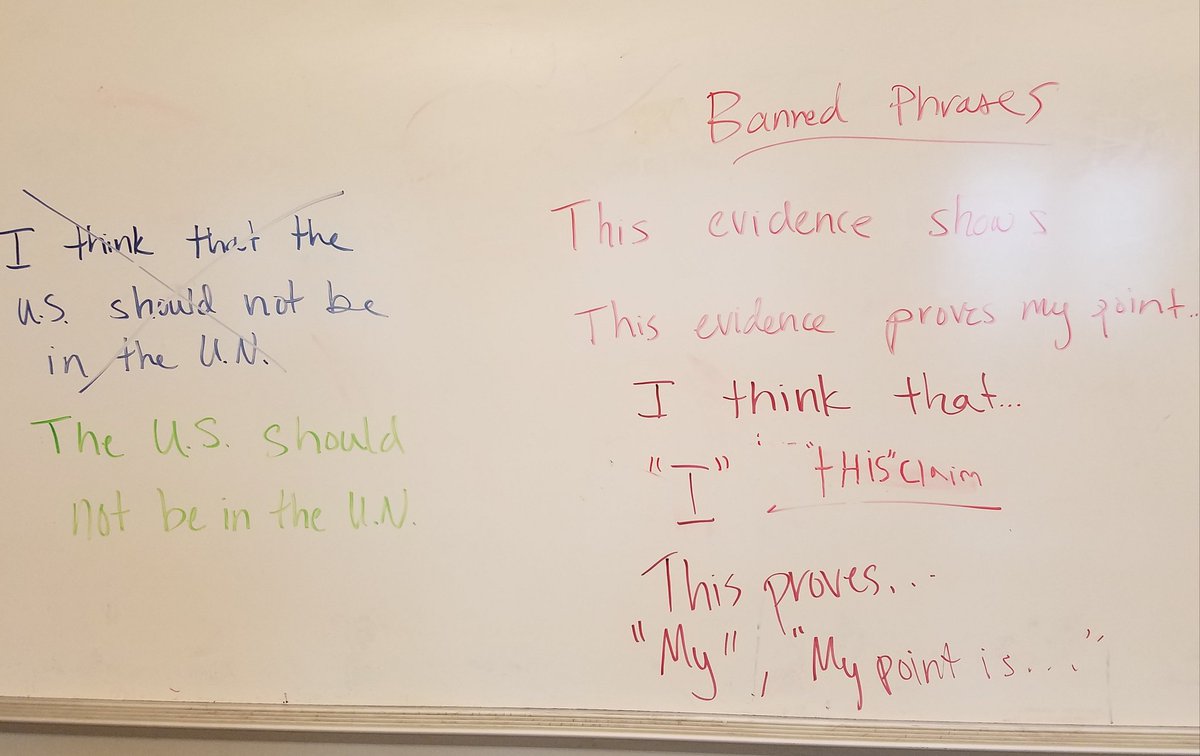 I think that the
U.S. should not be
in the U.N.
The U.S. should
not be in the U.N.
Banned Phrases
This evidence shows
This evidence proves my point..
I think that...
"I" "tHiS" Claim
This proves...
"My", "My point is...."